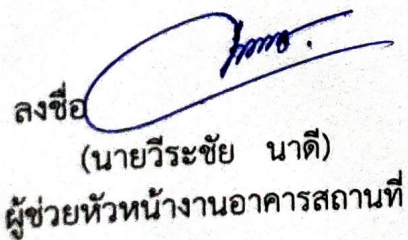 ลงชื่อ
(นายวีระชัย นาดี)
ผู้ช่วยหัวหน้างานอาคารสถานที่